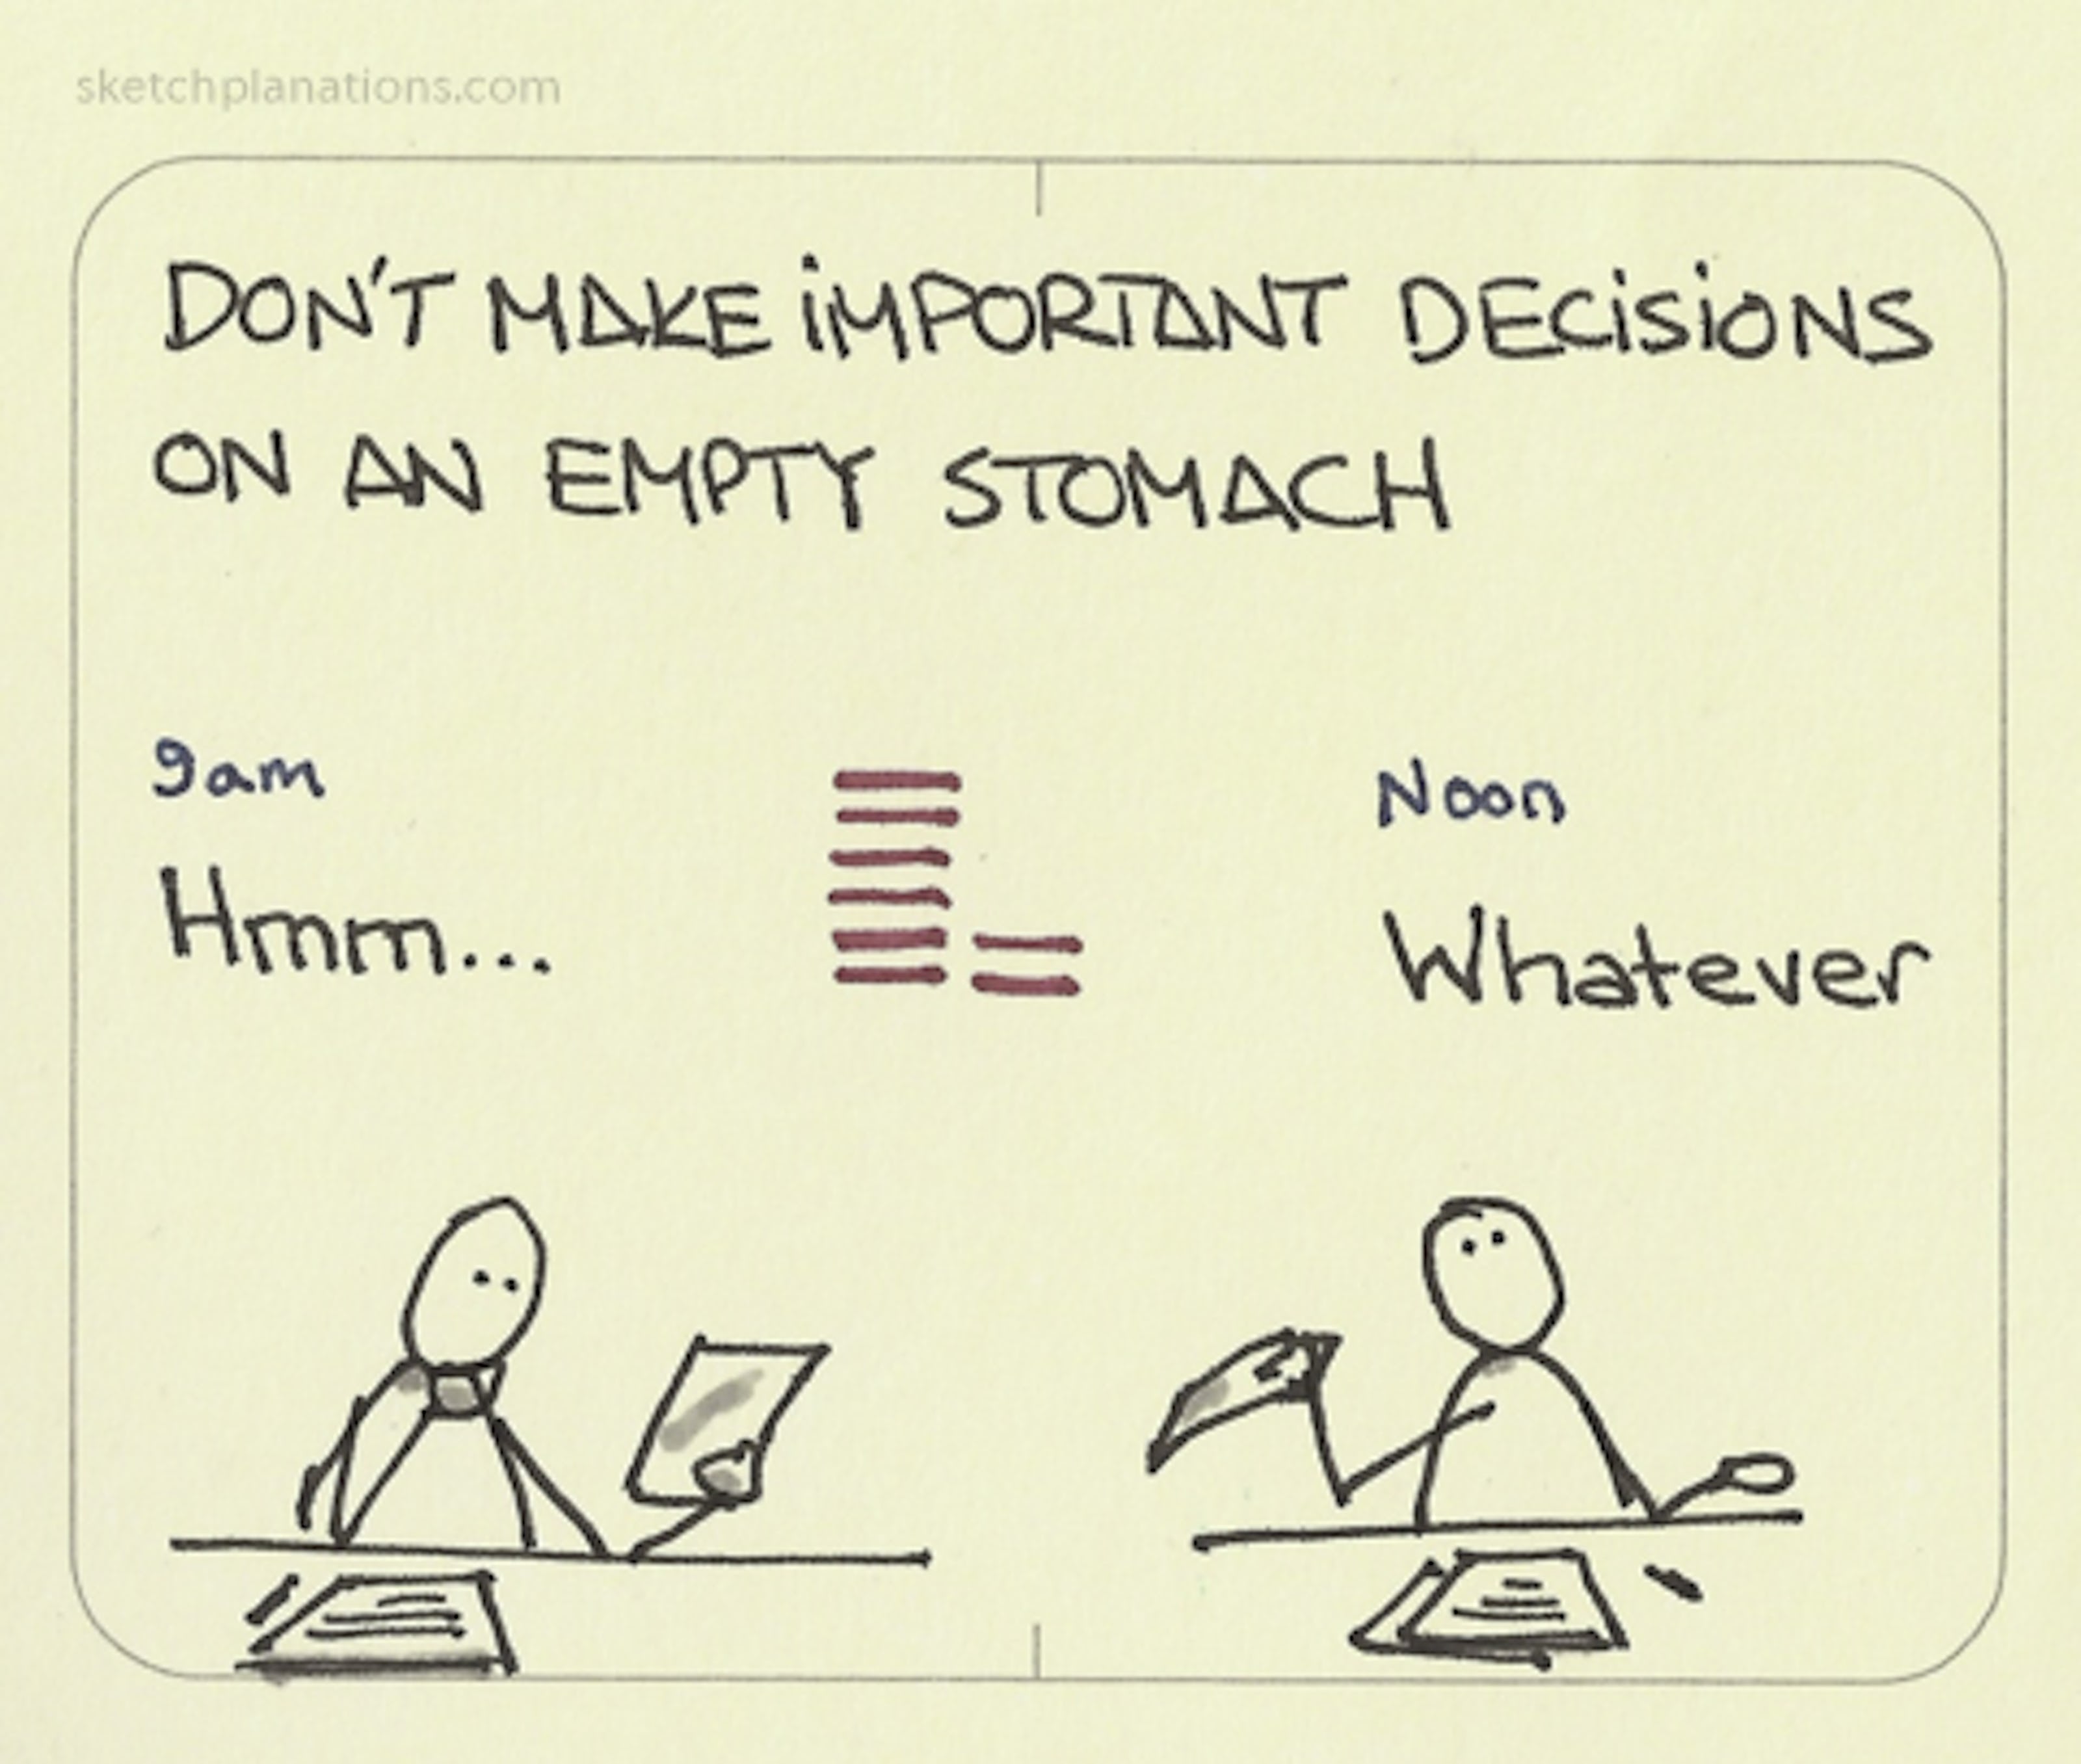 sketchplanations.com
DON'T MAKE iMPORTANT DECiSiONS
ON AN EMPTY STOMACH
9am
Noon
Hmm...
Whatever